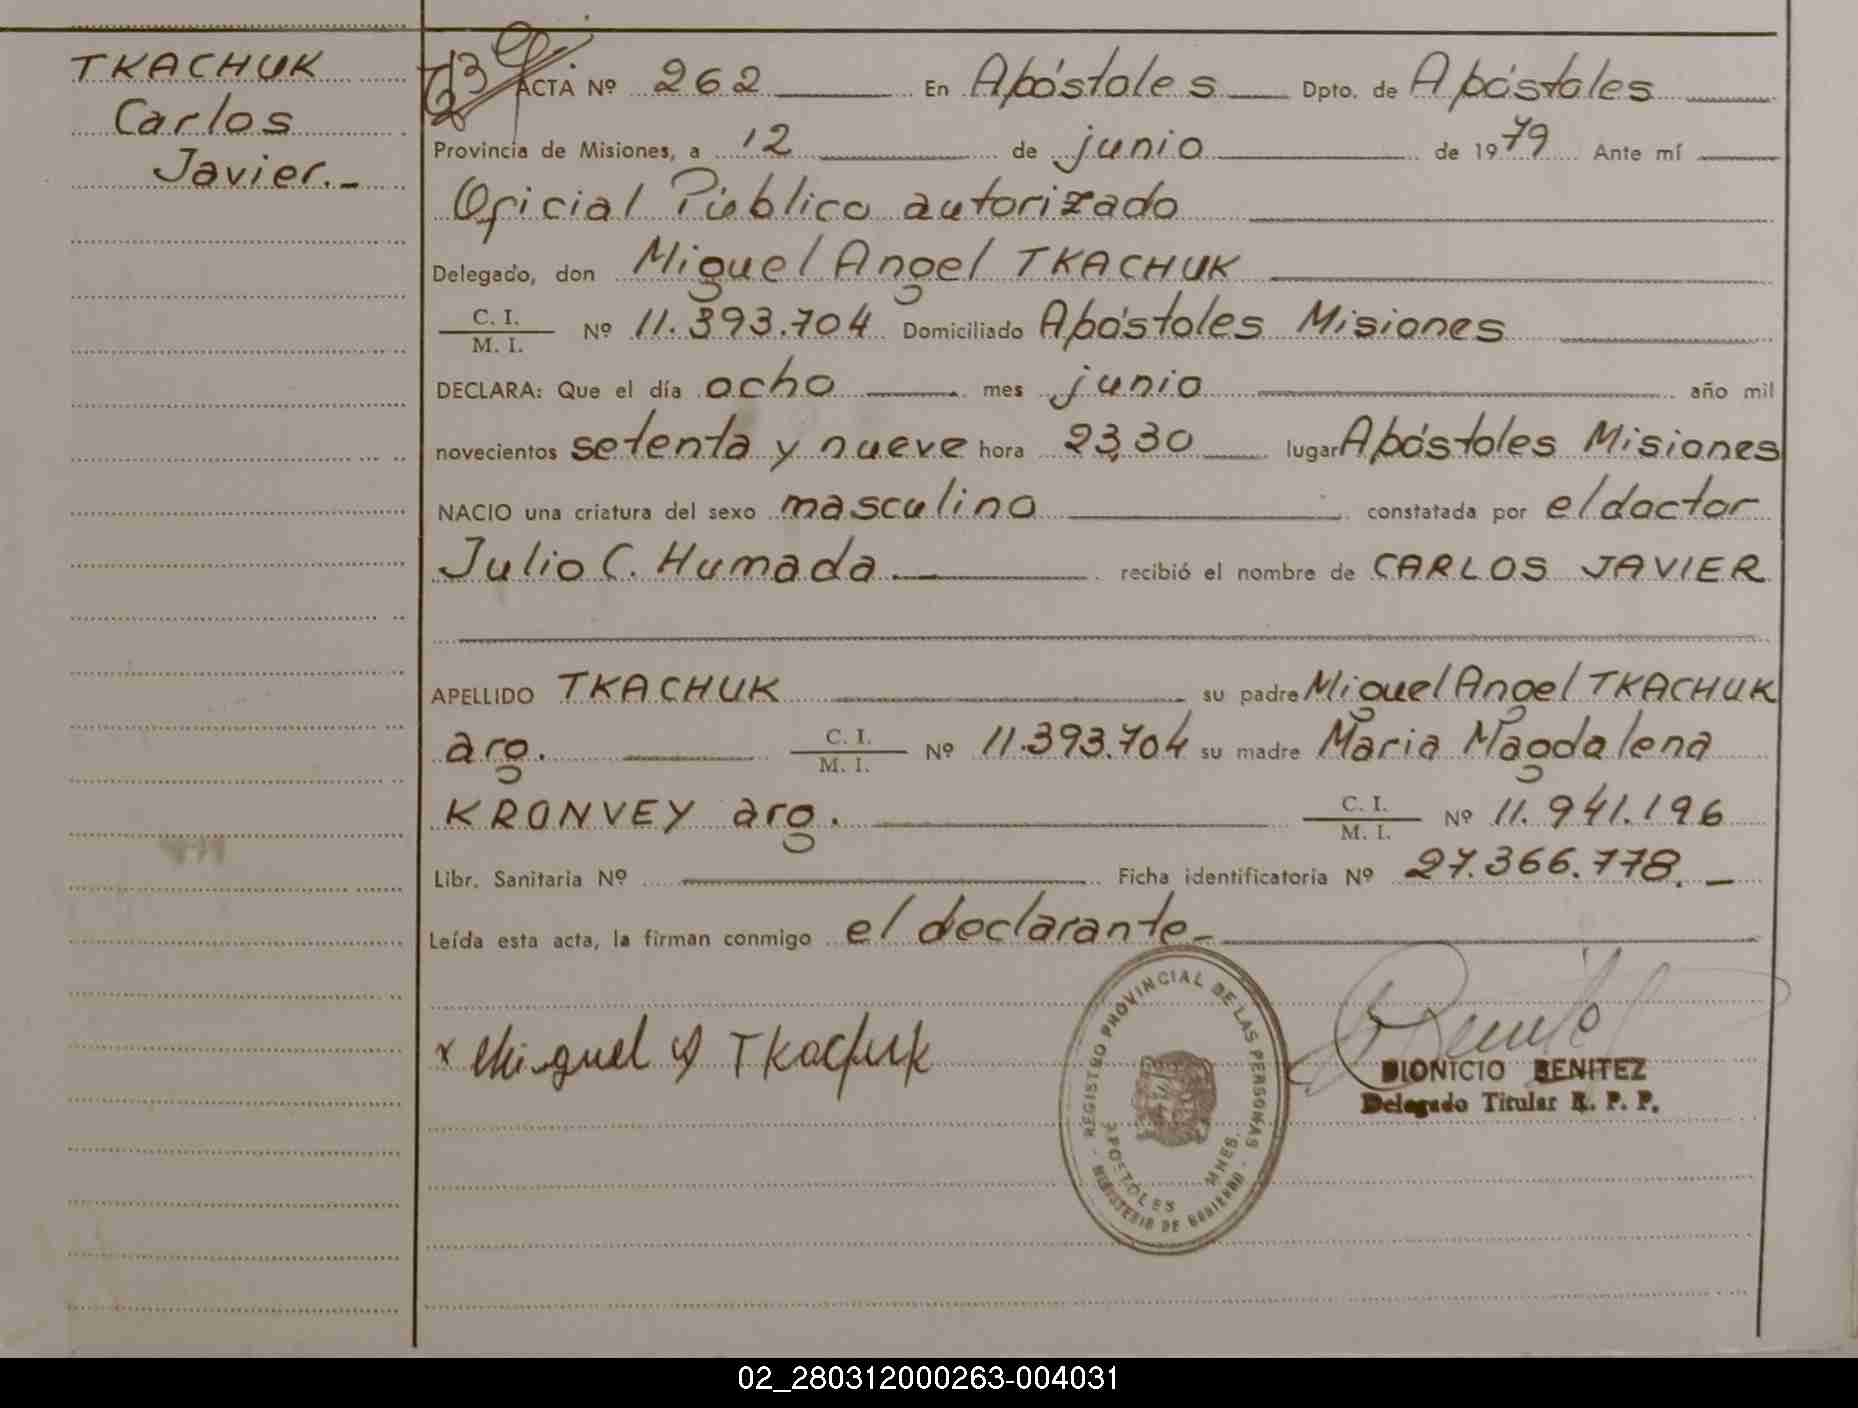 TKACHUK
Carlos
Javier.-
ACTA Nº 262 En Apóstoles Dpto. de Apóstoles
Provincia de Misiones, a 12 de junio de 1979 Ante mí
Oficial Público autorizado
Delegado, don Miguel Angel TKACHUK
C. I.
M. I. Nº 11.393.704 Domiciliado Apóstoles Misiones
DECLARA: Que el día ocho mes junio año mil
novecientos setenta y nueve hora 23,30 lugar Apóstoles Misiones
NACIO una criatura del sexo masculino constatada por el doctor
Julio C. Humada.- recibió el nombre de CARLOS JAVIER
APELLIDO TKACHUK su padre Miguel Angel TKACHUK
arg. C. I. M. I. Nº 11.393.704 su madre Maria Magdalena
KRONVEY arg. C. I. M. I. Nº 11.941.196
Libr. Sanitaria Nº Ficha identificatoria Nº 27.366.778.-
Leída esta acta, la firman conmigo el declarante-
x Miguel A Tkachuk
REGISTRO PROVINCIAL DE LAS PERSONAS
APOSTOLES MNES.
- MINISTERIO DE GOBIERNO -
DIONICIO BENITEZ
Delegado Titular R. P. P.
02_280312000263-004031